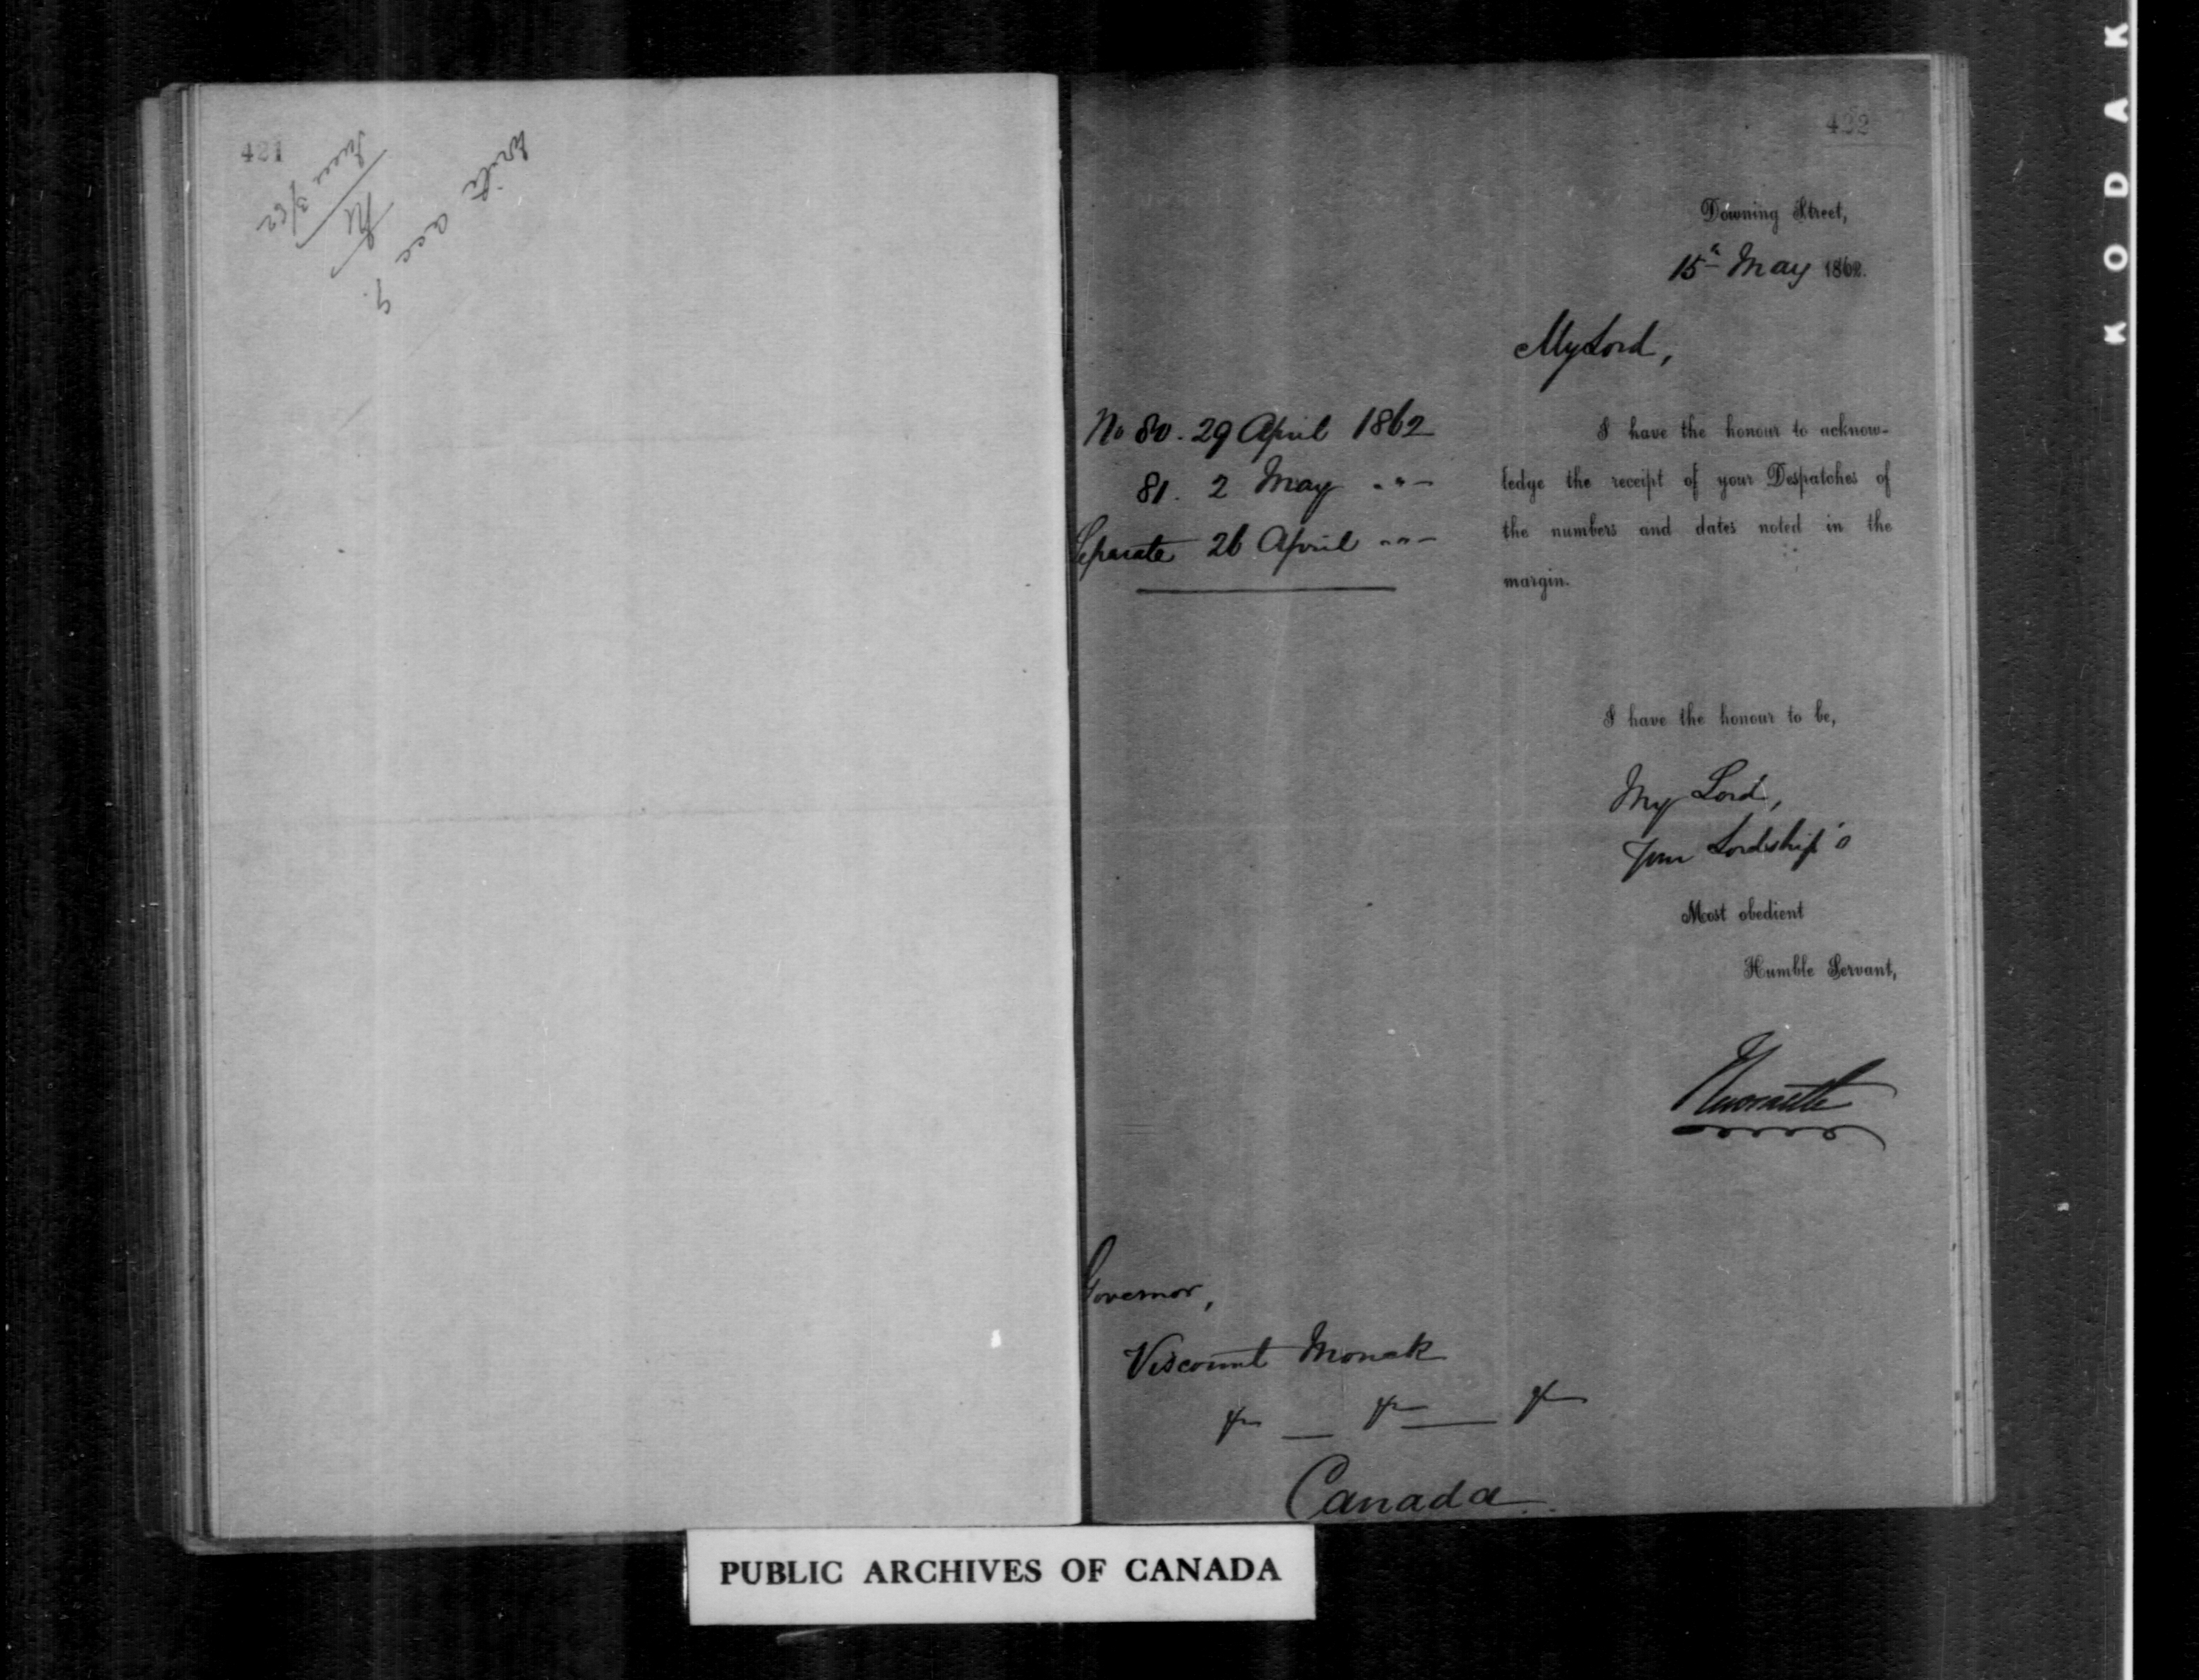 421
Write acc
June 3/62
422
Downing Street,
15th May 1862.
My Lord,
No 80. 29 April 1862
81. 2 May " "
Separate 26 April " "
I have the honour to acknow-
ledge the receipt of your Despatches of
the numbers and dates noted in the
margin.
I have the honour to be,
My Lord,
Your Lordship's
Most obedient
Humble Servant,
Newcastle
Governor,
Viscount Monck
&c &c &c
Canada
PUBLIC ARCHIVES OF CANADA
KODAK